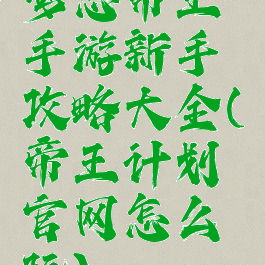 梦想帝王
手游新手
攻略大全(
帝王计划
官网怎么